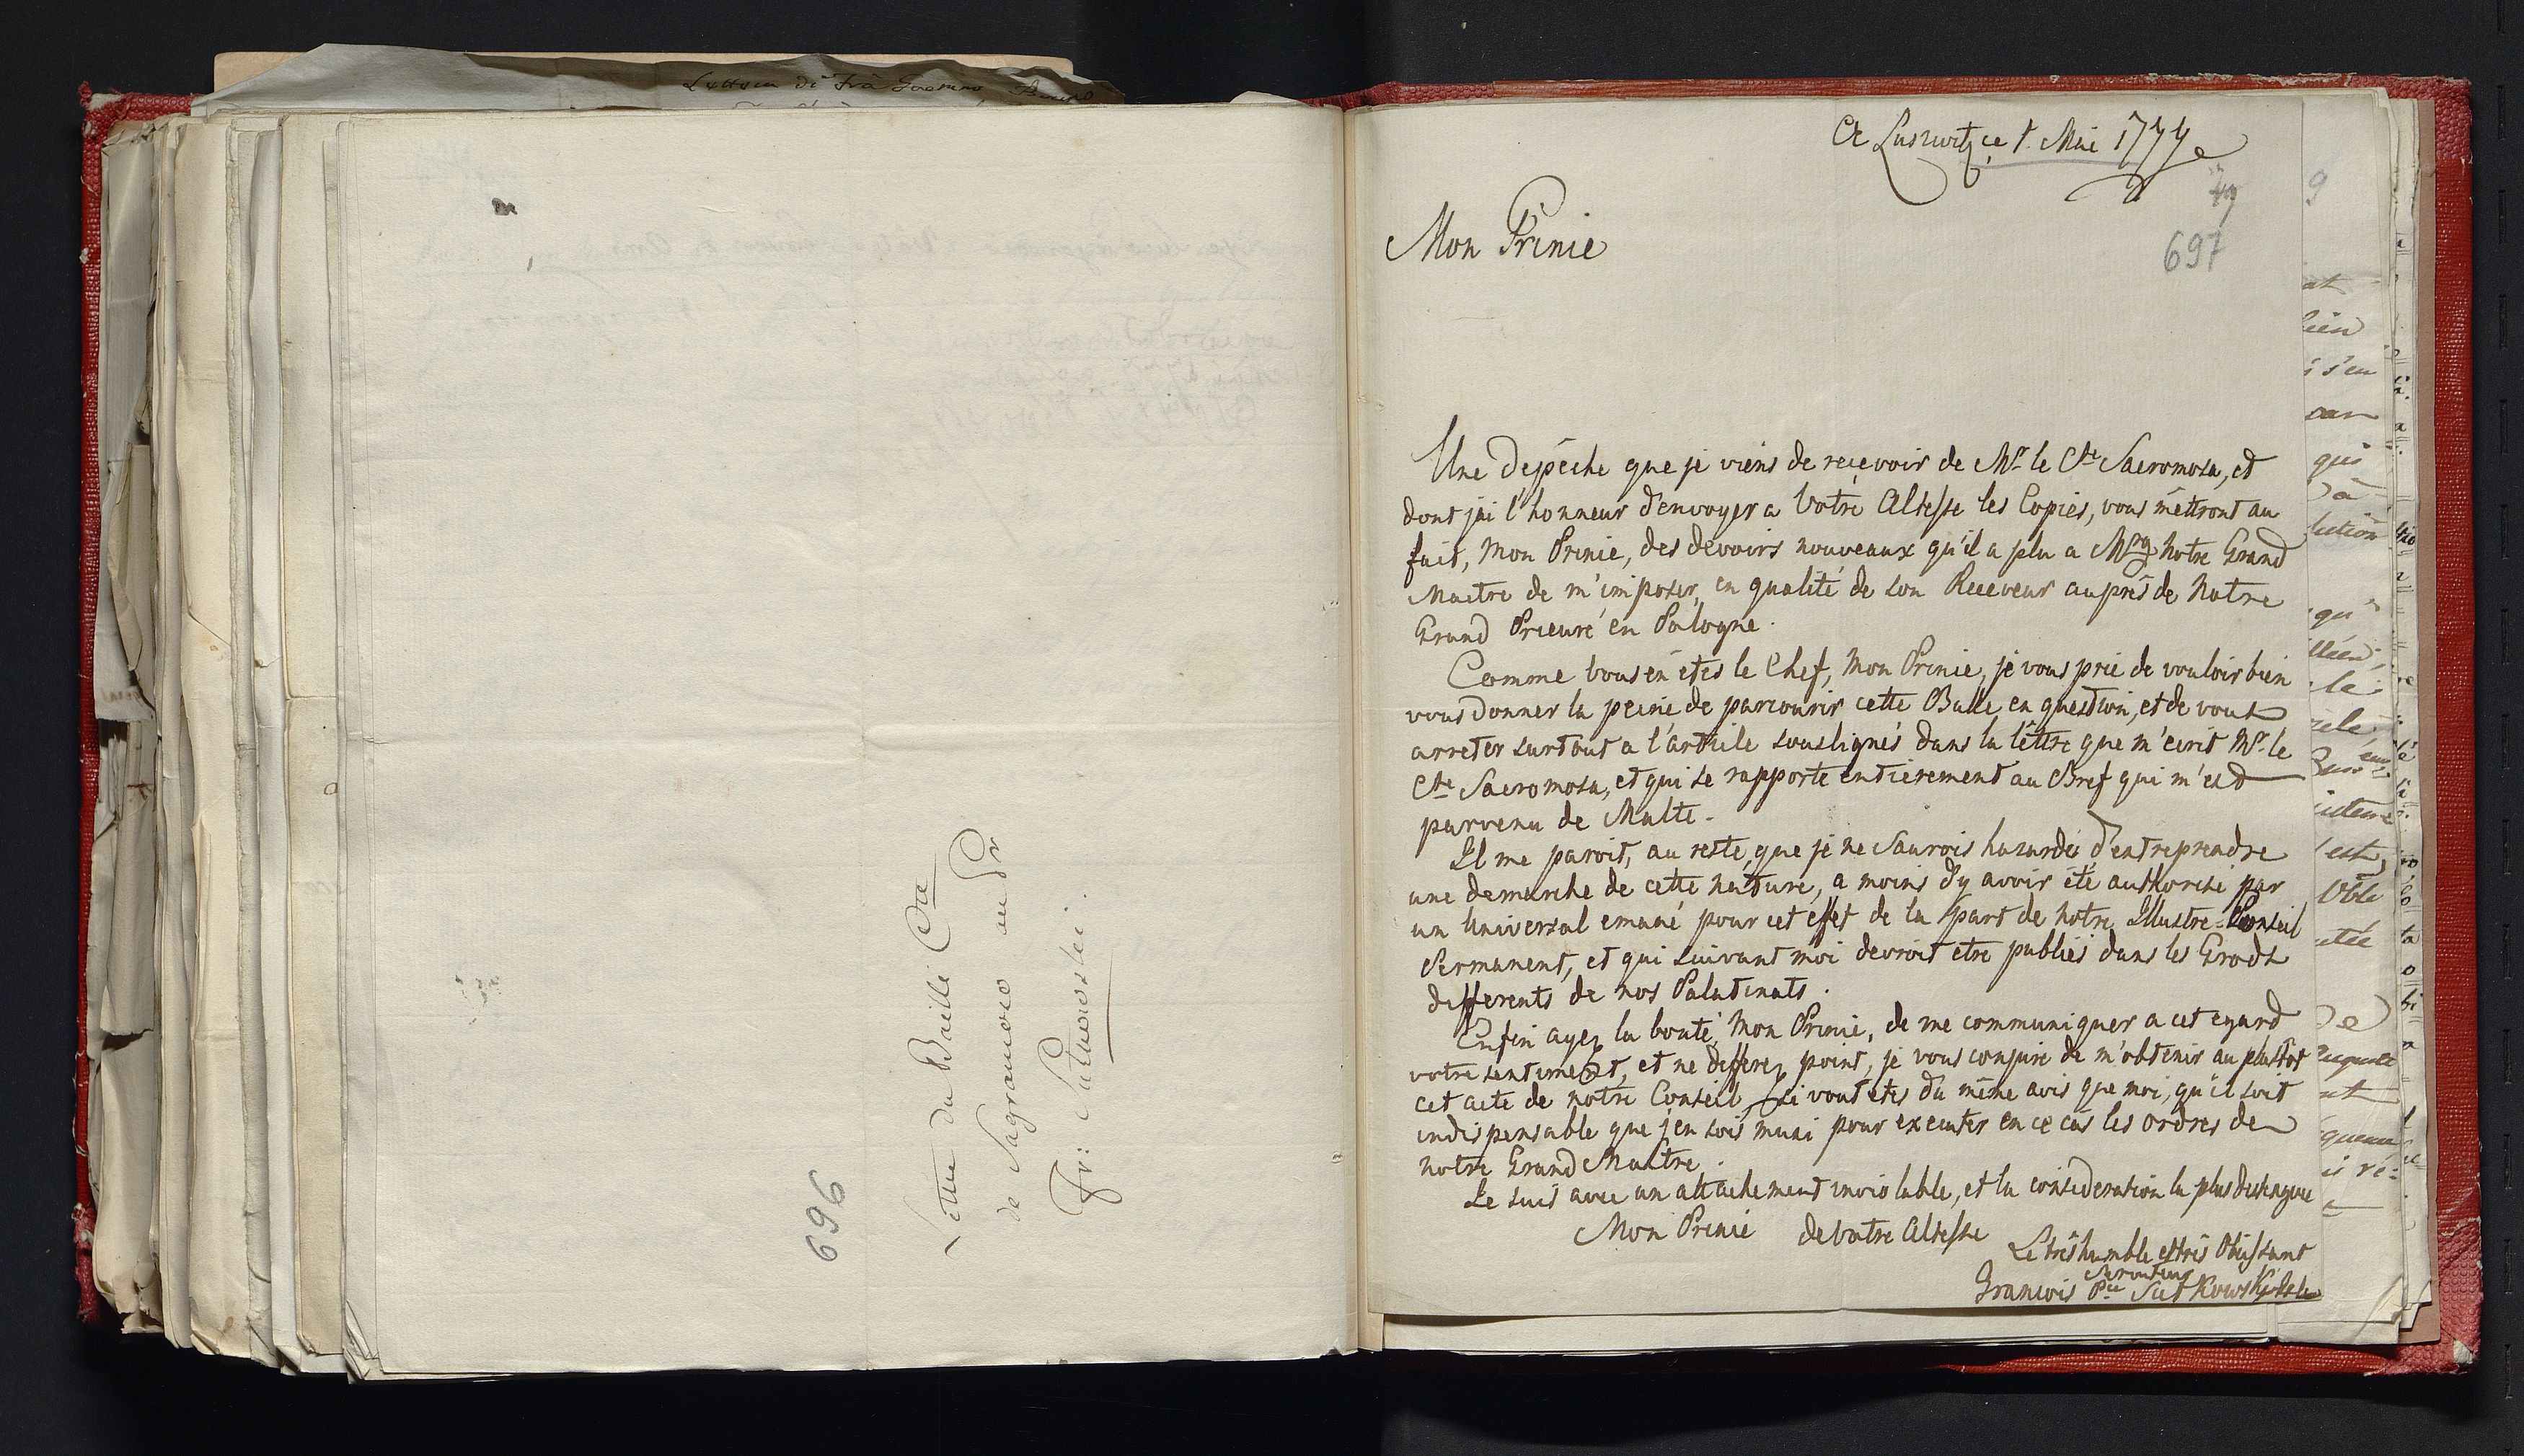 Lettera di Frà Gaetano Bruno
Lettre du Bailli Cte
de Sagramoso au Pr
Fr: Sulkowski.
696
A Lusznitz ce 1. Mai 1777
697
Mon Prince
Une depéche que je viens de recevoir de Mr. le Cte Sacromosa, et
dont j'ai l'honneur d'envoyer a Votre Altesse les Copies, vous mettront au
fait, Mon Prince, des devoirs nouveaux qu'il a plu a Msg notre Grand
Maitre de m'imposer, en qualité de son Receveur auprés de Notre
Grand Prieuré en Pologne.
Comme vous en étes le Chef, Mon Prince, je vous prie de vouloir bien
vous donner la peine de parcourir cette Bulle en question, et de vous
arreter surtout a l'article souslignés dans la lettre que m'ecrit Mr. le
Cte Sacromosa, et qui se rapporte entierement au Bref qui m'est
parvenu de Malte.
Il me paroit, au reste, que je ne saurois hazarder d'entreprendre
une demarche de cette nature, a moins d'y avoir été authorisé par
un Universal emané pour cet effet de la part de notre Illustre-Conseil
Permanent, et qui suivant moi devroit etre publiés dans les Grods
differents de nos Palatinats.
Enfin ayez la bonté, Mon Prince, de me communiquer a cet egard
votre sentiment, et ne differez point, je vous conjure de m'obtenir au plustot
cet acte de notre Conseil, si vous étes du même avis que moi, qu'il soit
indispensable que j'en sois muni pour executer en ce cas les ordres de
notre Grand Maitre.
Je suis avec un attachement inviolable, et la consideration la plus distinguee
Mon Prince de Votre Altesse
Le trés humble et trés Obeissant
Serviteur
Francois Pce Sulkowski
9
at
lien
s'en
qui
à
lution
qu'
le
est,